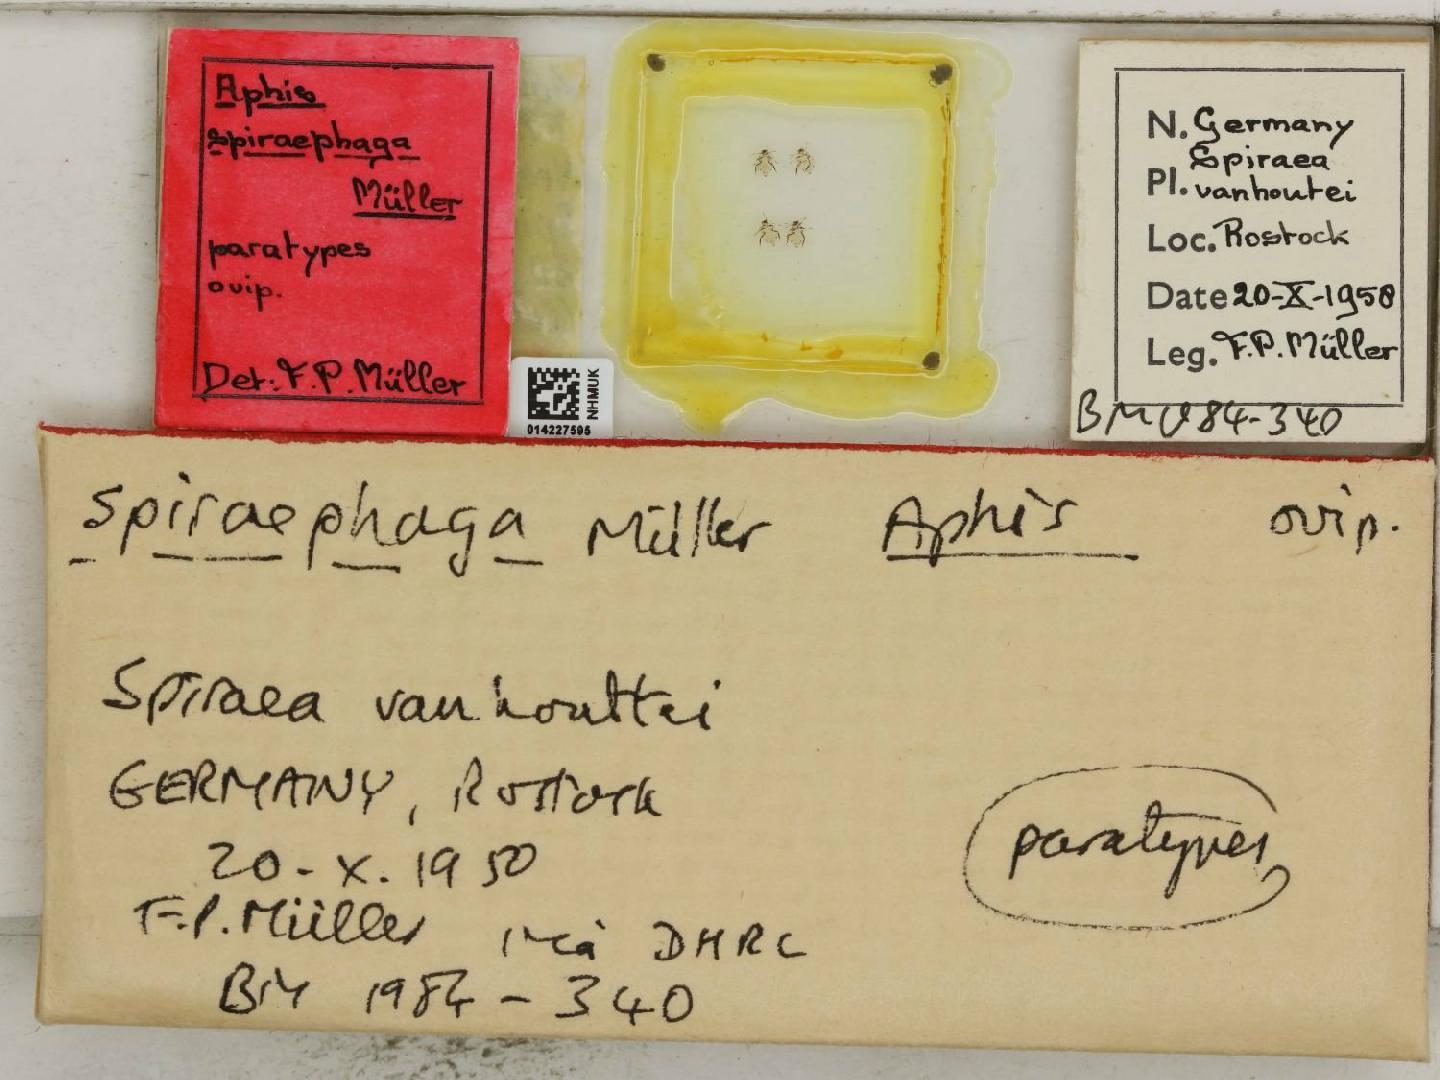 Aphis
spiraephaga
Müller
paratypes
ovip.
Det: F.P. Müller
NHMUK
014227595
N. Germany
Pl. Spiraea
vanhoutei
Loc. Rostock
Date 20-X-1958
Leg. F.P. Müller
BM 1984-340
spiraephaga Müller Aphis ovip.
Spiraea vanhouttei
GERMANY, Rostock
20-X.1950
paratypes
F.P. Müller DHRC
BM 1984-340